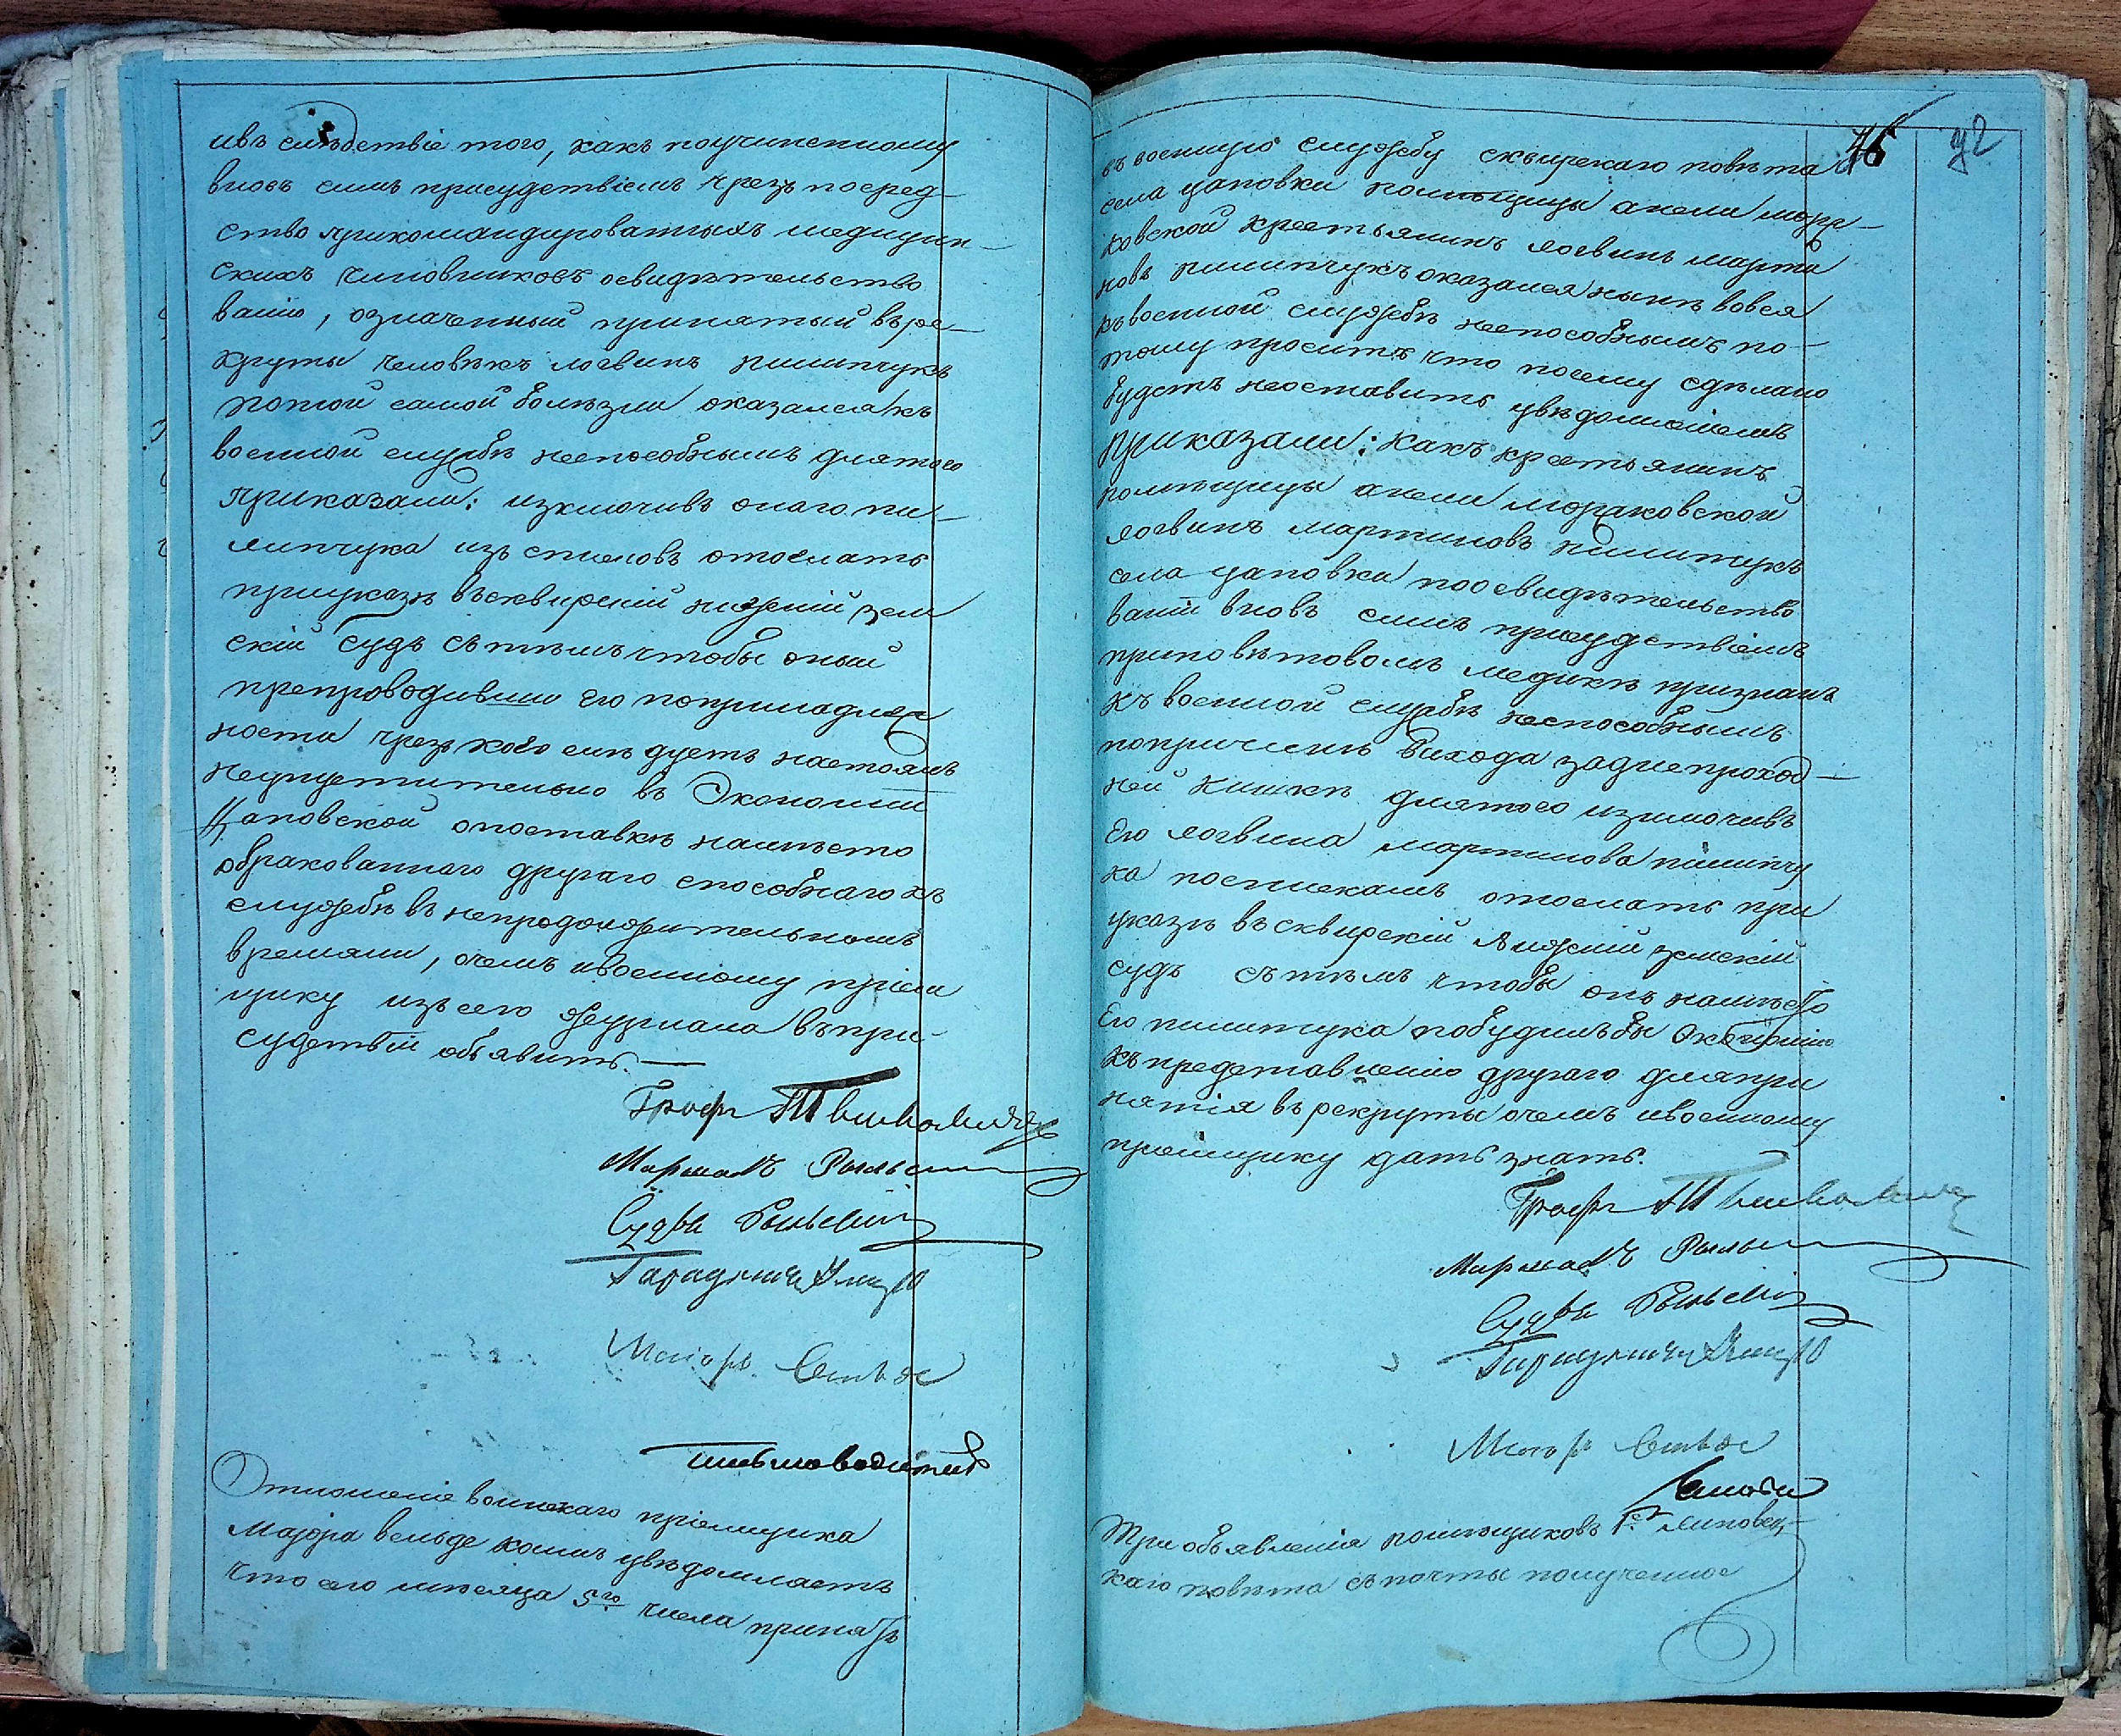 ивъ следствіе того, какъ поучиненному
вновь симъ присудствіемъ чрезъ посред-
ство прикомандированныхъ медицин-
скихъ чиновниковъ освидѣтельство
ванію, означенный принятый върe-
круты человѣкъ логвинъ пилипчукъ
потой самой болѣзни оказался къ
военной службѣ неспособнымъ длятого
приказали: изключивъ онаго пи-
липчука изъ списковъ отослать
приуказѣ въсквирскій нижній зем
скій судъ сътѣмъ чтобы оный
препроводивши его попринадлеж
ности чрезъ кого слѣдуетъ настоялъ
неупустительно въ Экономіи
Цаповской опоставкѣ намѣсто
обракованнаго другаго способнаго къ
службѣ въ непродолжительномъ
времяни, очемъ ивоенному пріем
щику изъ сего журнала въпри-
судствіи объявить.—
Графъ
Маршалъ
Судья
Маіоръ
письмоводитель
Отношеніе воинскаго пріемщика
Маіора вельде коимъ увѣдомляетъ
что сего мѣсяца 5го числа принятъ
46 92
въ военную службу сквирскаго повѣта
села цаповки помѣщицы анели мора-
ковской крестьянинъ логвинъ марти
новъ пилипчукъ оказался нынѣ вовся
къ военной службѣ неспособнымъ по-
тому проситъ что посему сдѣлано
будетъ неоставить увѣдомленіемъ
Приказали: какъ крестьянинъ
помѣщицы анели мораковской
логвинъ мартиновъ пилипчукъ
села цаповки поосвидѣтельство
ваніи вновь симъ присудствіемъ
приповѣтовомъ медикѣ признанъ
къ военной службѣ неспособнымъ
попричинѣ выхода заднепроход-
ней кишки длятого изключивъ
Его логвина мартинова пилипчу
ка поспискамъ отослать при
указѣ въ сквирскій Нижній земскій
судъ сътѣмъ чтобы онъ намѣсто
Его пилипчука побудилъ бы Экономію
къ представленію другаго дляпри
нятія въ рекруты очемъ ивоенному
пріемщику дать знать.
Графъ
Маршалъ
Судья
Маіоръ
Три объявленія помѣщиковъ липовец-
каго повѣта съ почты полученное